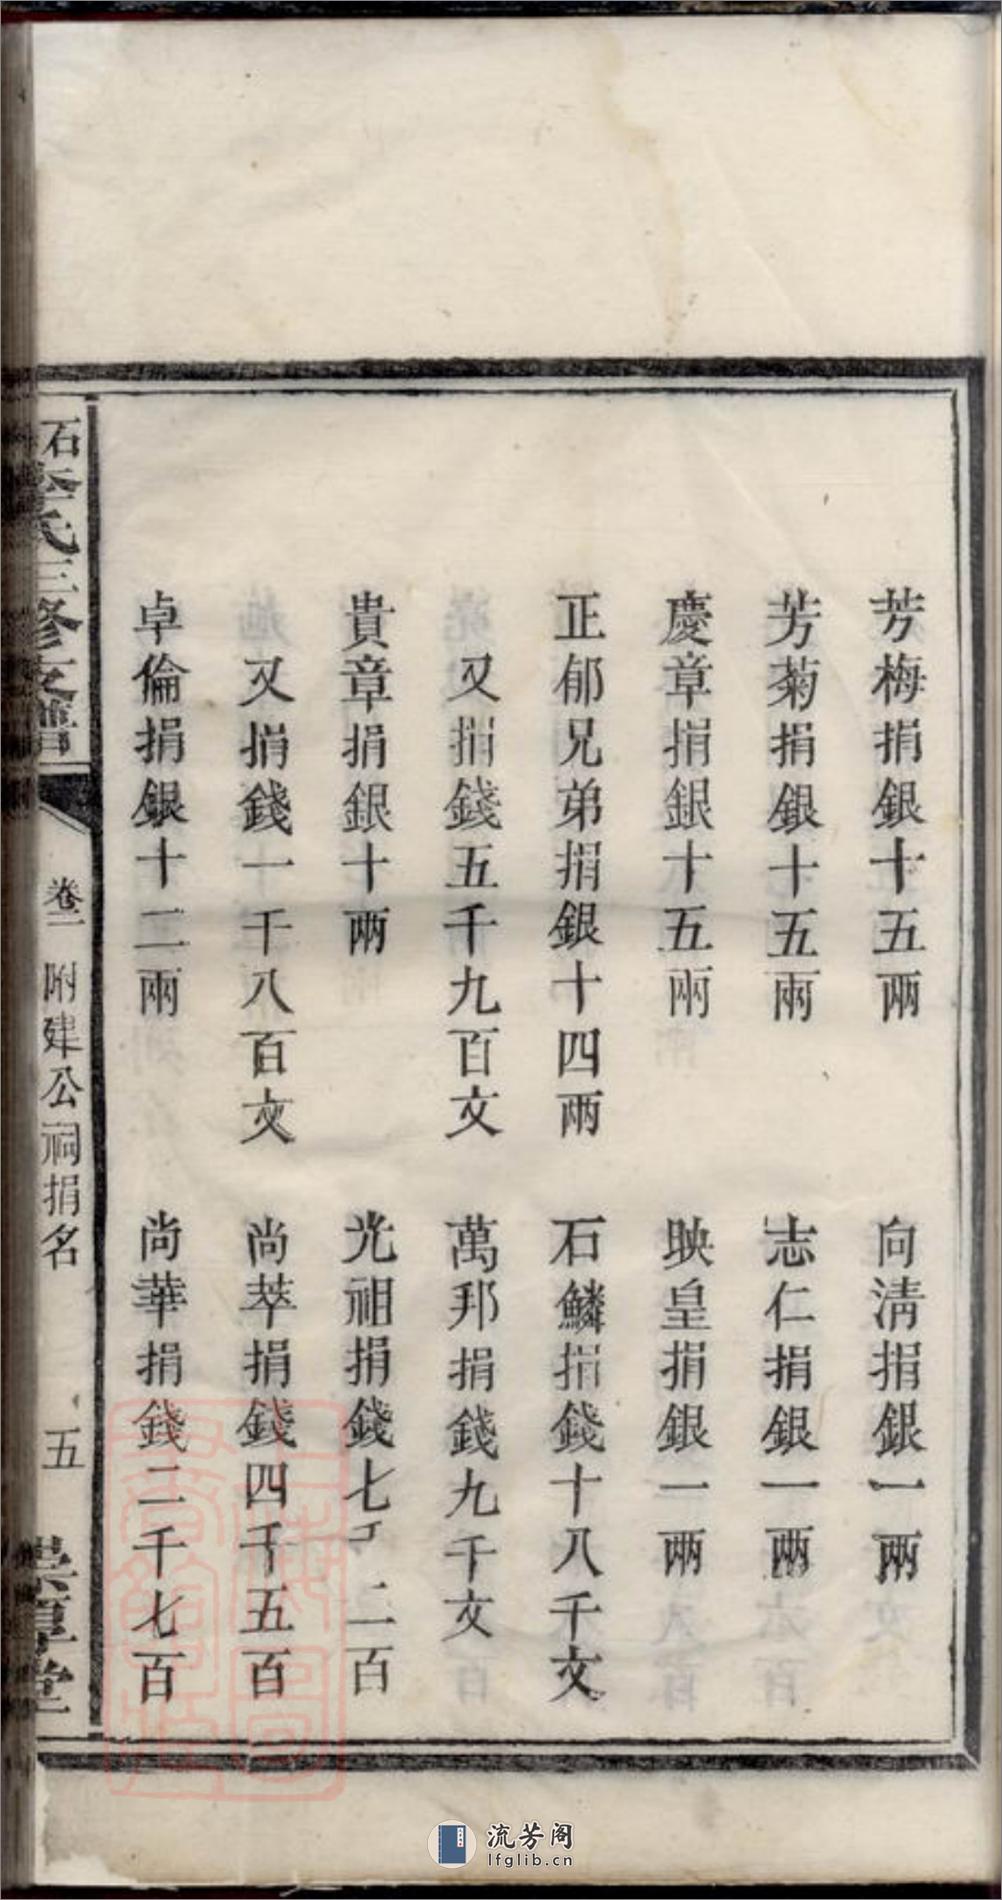 芳梅捐銀十五兩
向清捐銀一兩
芳菊捐銀十五兩
志仁捐銀一兩
慶章捐銀十五兩
映皇捐銀一兩
正郁兄弟捐銀十四兩
石鱗捐錢十八千文
又捐錢五千九百文
萬邦捐錢九千文
貴章捐銀十兩
光祖捐錢七千二百
又捐錢一千八百文
尚萃捐錢四千五百
卓倫捐銀十二兩
尚華捐錢二千七百
石李氏三修支譜
卷二
附建公祠捐名
五
堂
流芳阁
lfglib.cn